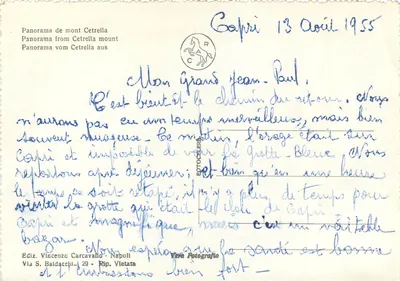 Capri 13 Août 1955
Panorama de mont Cetrella
Panorama from Cetrella mount
Panorama vom Cetrella aus
C R
Mon Grand Jean-Paul.
C'est bientôt le chemin du retour. Nous
n'aurons pas eu un temps merveilleux, mais bien
souvent nuageux. Ce matin l'orage était sur
Capri et impossible de voir la grotte Bleue. Nous
repartons après déjeuner; et bien qu'en une heure
le temps se soit rétabli, il n'y a plus de temps pour
visiter la grotte qui était le clou de Capri
Capri est magnifique, mais c'est un véritable
bazar.
Nous espérons que santé est bonne
et t'embrassons bien fort —
Ediz. Vincenzo Carcavallo - Napoli
Via S. Baldacchi, 29 - Rip. Vietata
Vera Fotografia